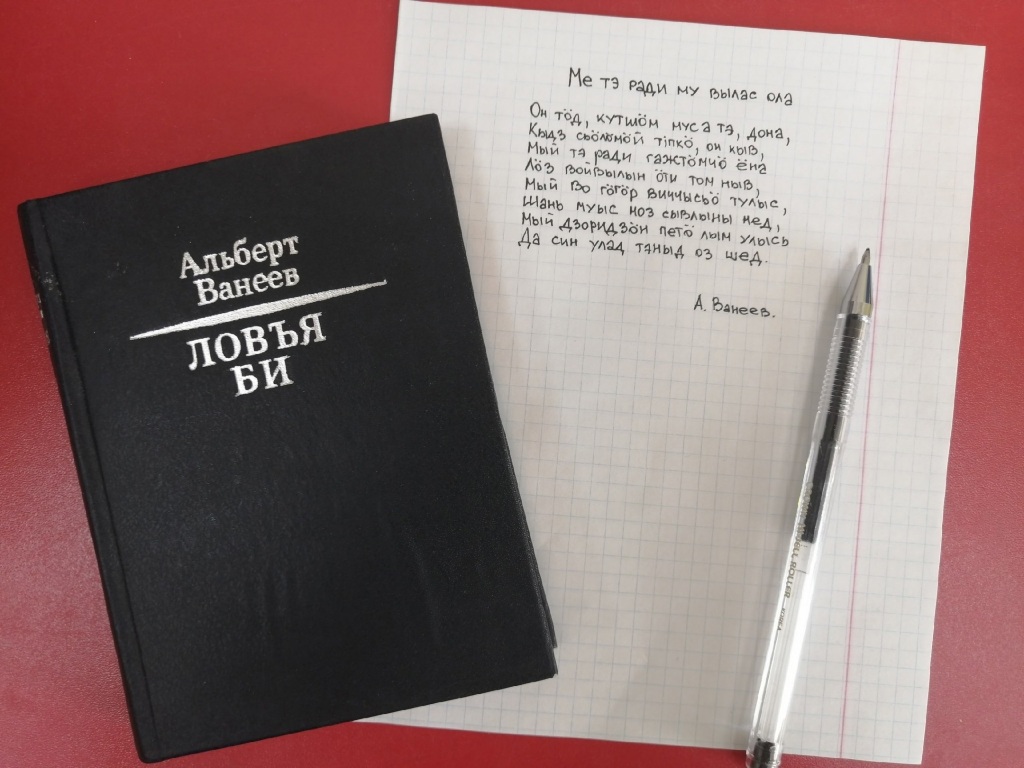 Альберт
Ванеев
ЛОВЪЯ
БИ
Ме тэ ради му вылас ола
Он тӧд, кутшӧм муса тэ, дона,
Кыдз сьӧлӧмӧй тіпкӧ, он кыв,
Мый тэ ради гажтӧмчӧ ёна
Лӧз войвылын ӧти том ныв,
Мый во гӧгӧр виччысьӧ тулыс,
Шань муыс ноз сывлыны мед,
Мый дзоридзӧн петӧ лым улысь
Да син улад таныд оз шед.
А. Ванеев.
ROLLER